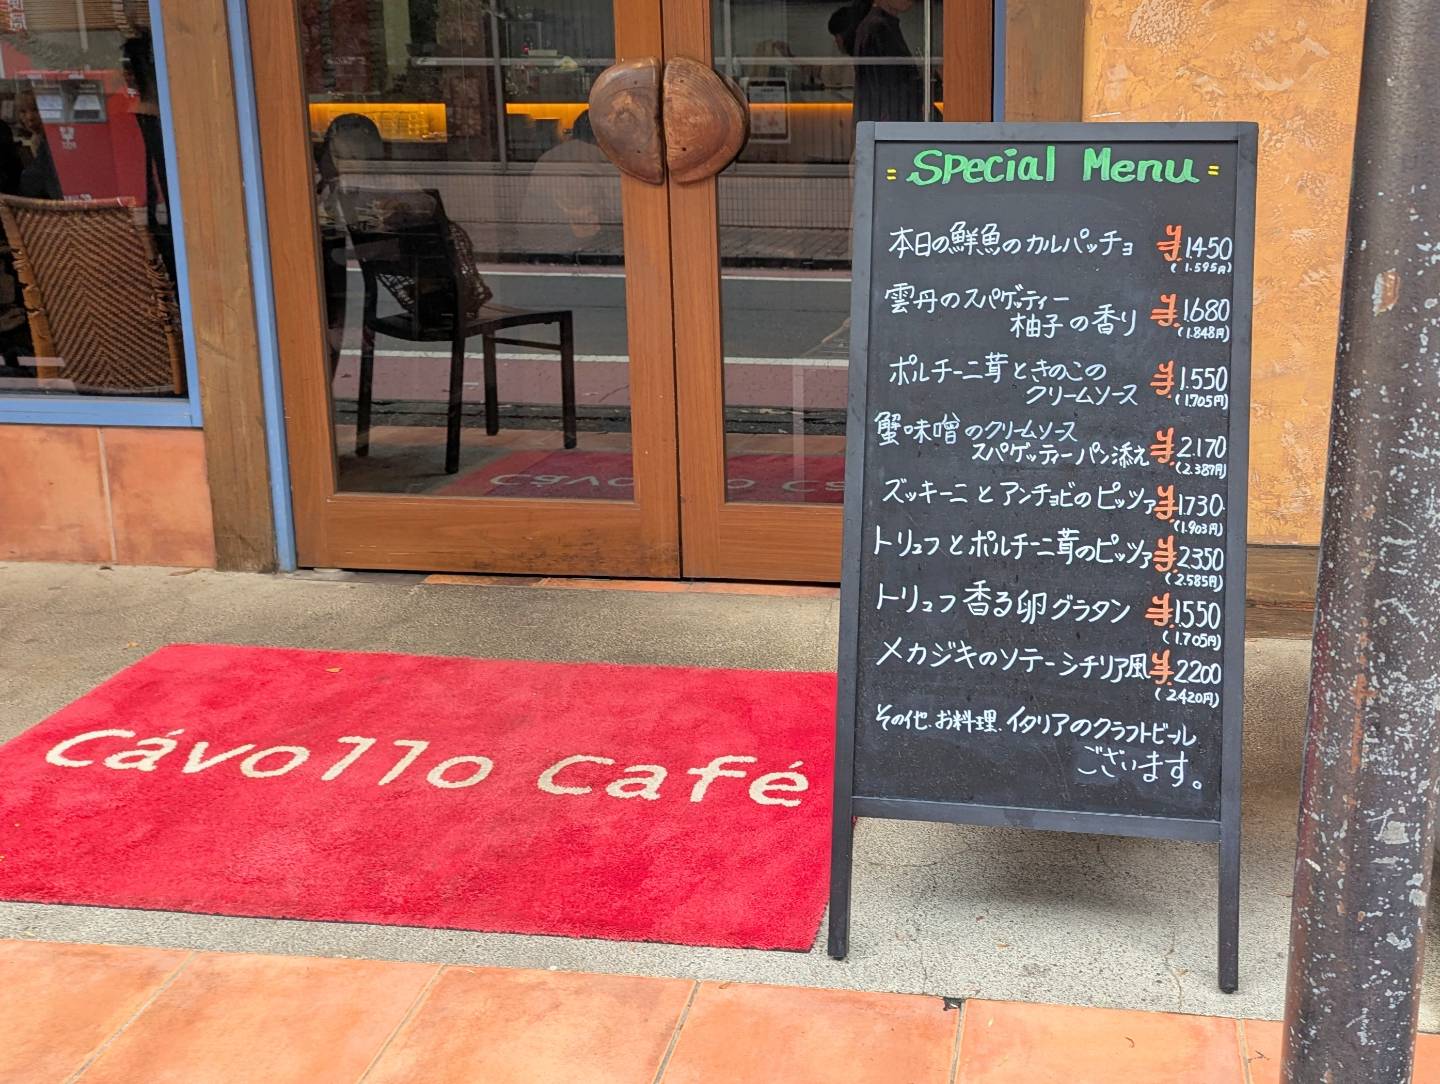 Special Menu
本日の鮮魚のカルパッチョ ¥1450
(1.595円)
雲丹のスパゲッティー
柚子の香り ¥1.680
(1.848円)
ポルチーニ茸ときのこの
クリームソース ¥1.550
(1.705円)
蟹味噌のクリームソース
スパゲッティーパン添え ¥2.170
(2.387円)
ズッキーニとアンチョビのピッツァ ¥1.730
(1.903円)
トリュフとポルチーニ茸のピッツァ ¥2350
(2.585円)
トリュフ香る卵グラタン ¥1550
(1.705円)
メカジキのソテーシチリア風 ¥2200
(2420円)
その他.お料理.イタリアのクラフトビール
ございます。
Cávollo Café